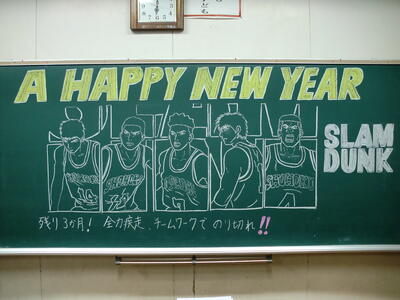 A HAPPY NEW YEAR
SLAM
DUNK
残り3か月! 全力疾走、チームワークで のり切れ!!